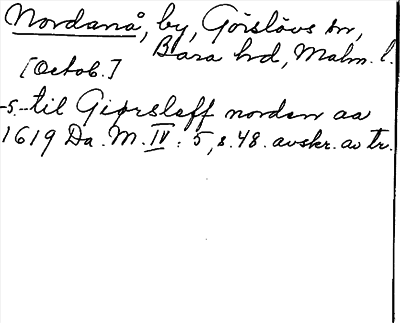 Nordanå, by, Görslövs sn,
Bara hd, Malm. l.
[Octob.]
-s.- til Giørsleff norden aa
1619 Da. M. IV: 5, s. 48. avskr. av tr.